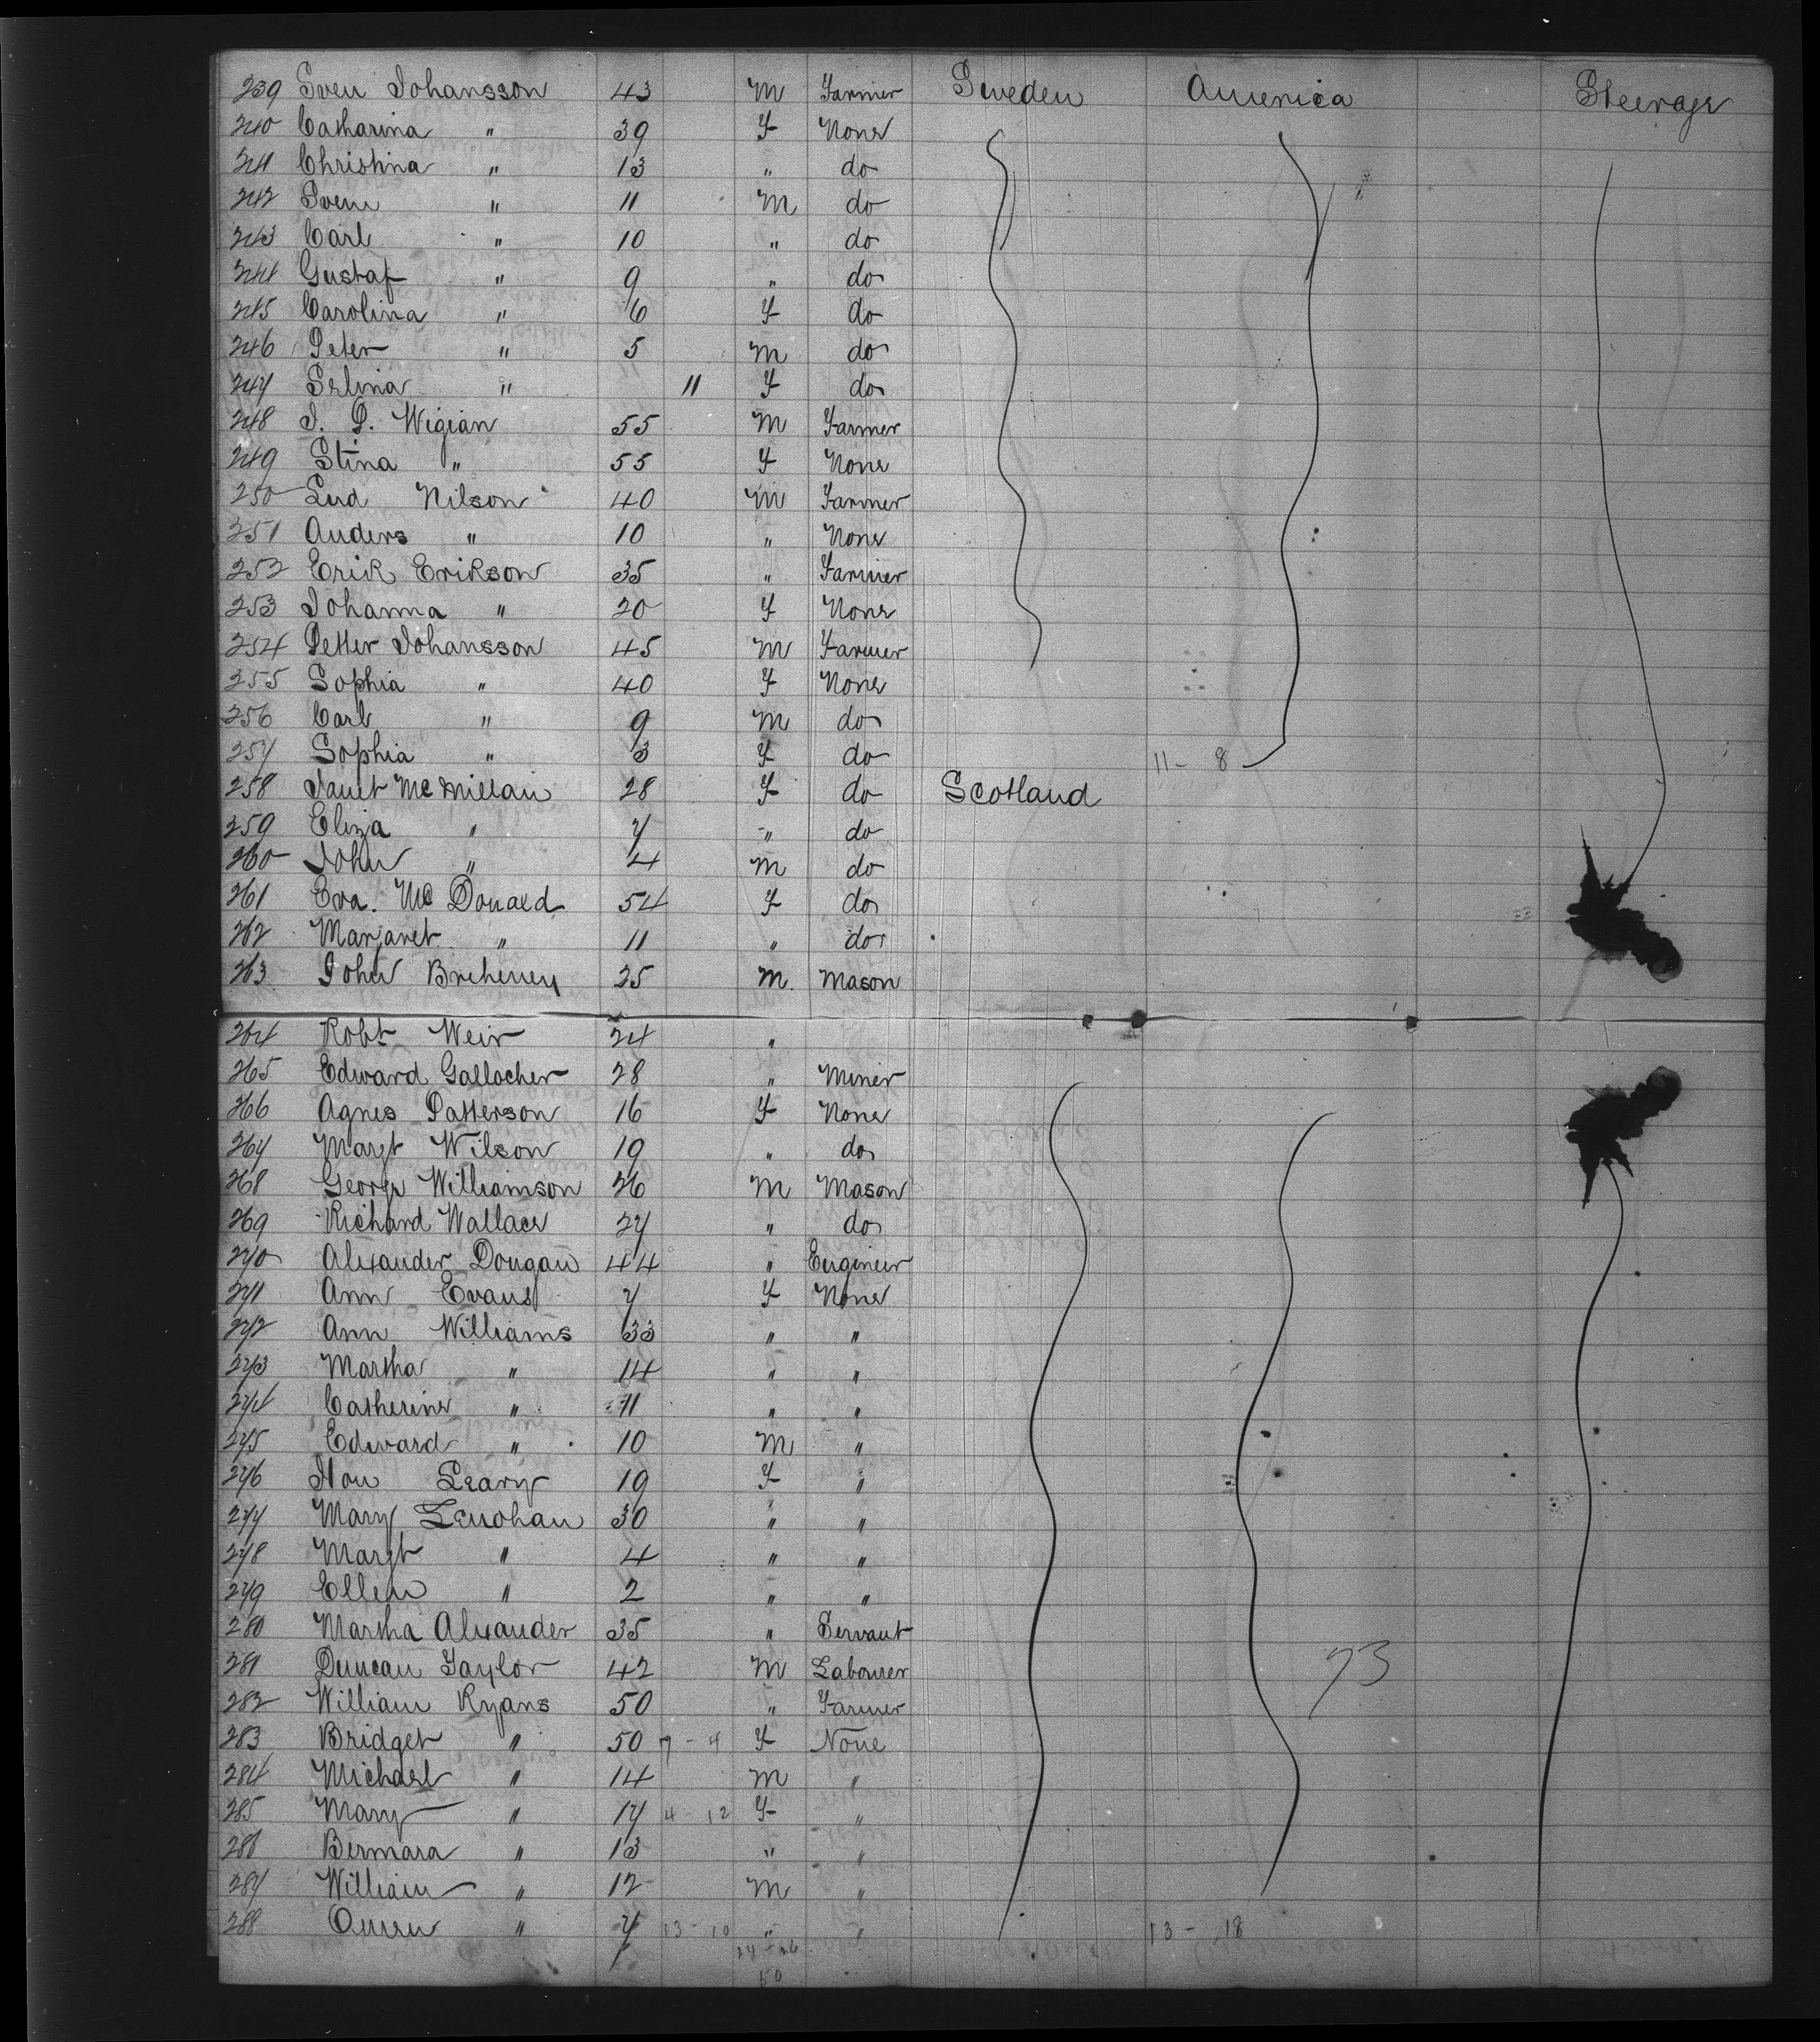 239 Sven Johansson 43 M Farmer Sweden America Steerage
240 Catharina " 39 F None
241 Christina " 13 " do
242 Sven " 11 M do
243 Carl " 10 " do
244 Gustaf " 9 " do
245 Carolina " 6 F do
246 Peter " 5 M do
247 Selina " 11 F do
248 J. P. Wigian 55 M Farmer
249 Stina " 55 F None
250 Lud Nilson 40 M Farmer
251 Anders " 10 " None
252 Erik Erikson 35 " Farmer
253 Johanna " 20 F None
254 Petter Johansson 45 M Farmer
255 Sophia " 40 F None
256 Carl " 9 M do
257 Sophia " 3 F do 11 - 8
258 Janet McMillan 28 F do Scotland
259 Eliza " 7 " do
260 John " 4 M do
261 Eva. McDonald 54 F do
262 Margaret " 11 " do
263 John Breheney 25 M. Mason
264 Robt Weir 24 "
265 Edward Gallocher 28 " Miner
266 Agnes Patterson 16 F None
267 Margt Wilson 19 " do
268 George Williamson 26 M Mason
269 Richard Wallace 27 " do
270 Alexander Dougan 44 " Engineer
271 Ann Evans 7 F None
272 Ann Williams 33 " "
273 Martha " 14 " "
274 Catherine " 11 " "
275 Edward " 10 M "
276 Leary 19 F "
277 Mary Lenohan 30 " "
278 Margt " 4 " "
279 Ellen " 2 " "
280 Martha Alexander 35 " Servant
281 Duncan Taylor 42 M Labourer 73
282 William Ryans 50 " Farmer
283 Bridget " 50 7 - 4 F None
284 Michael " 14 M "
285 Mary " 17 4 - 12 F "
286 Bermara " 13 " "
287 William " 12 M "
288 Owen " 7 13 - 10 " " 13 - 18
24 - 26
50